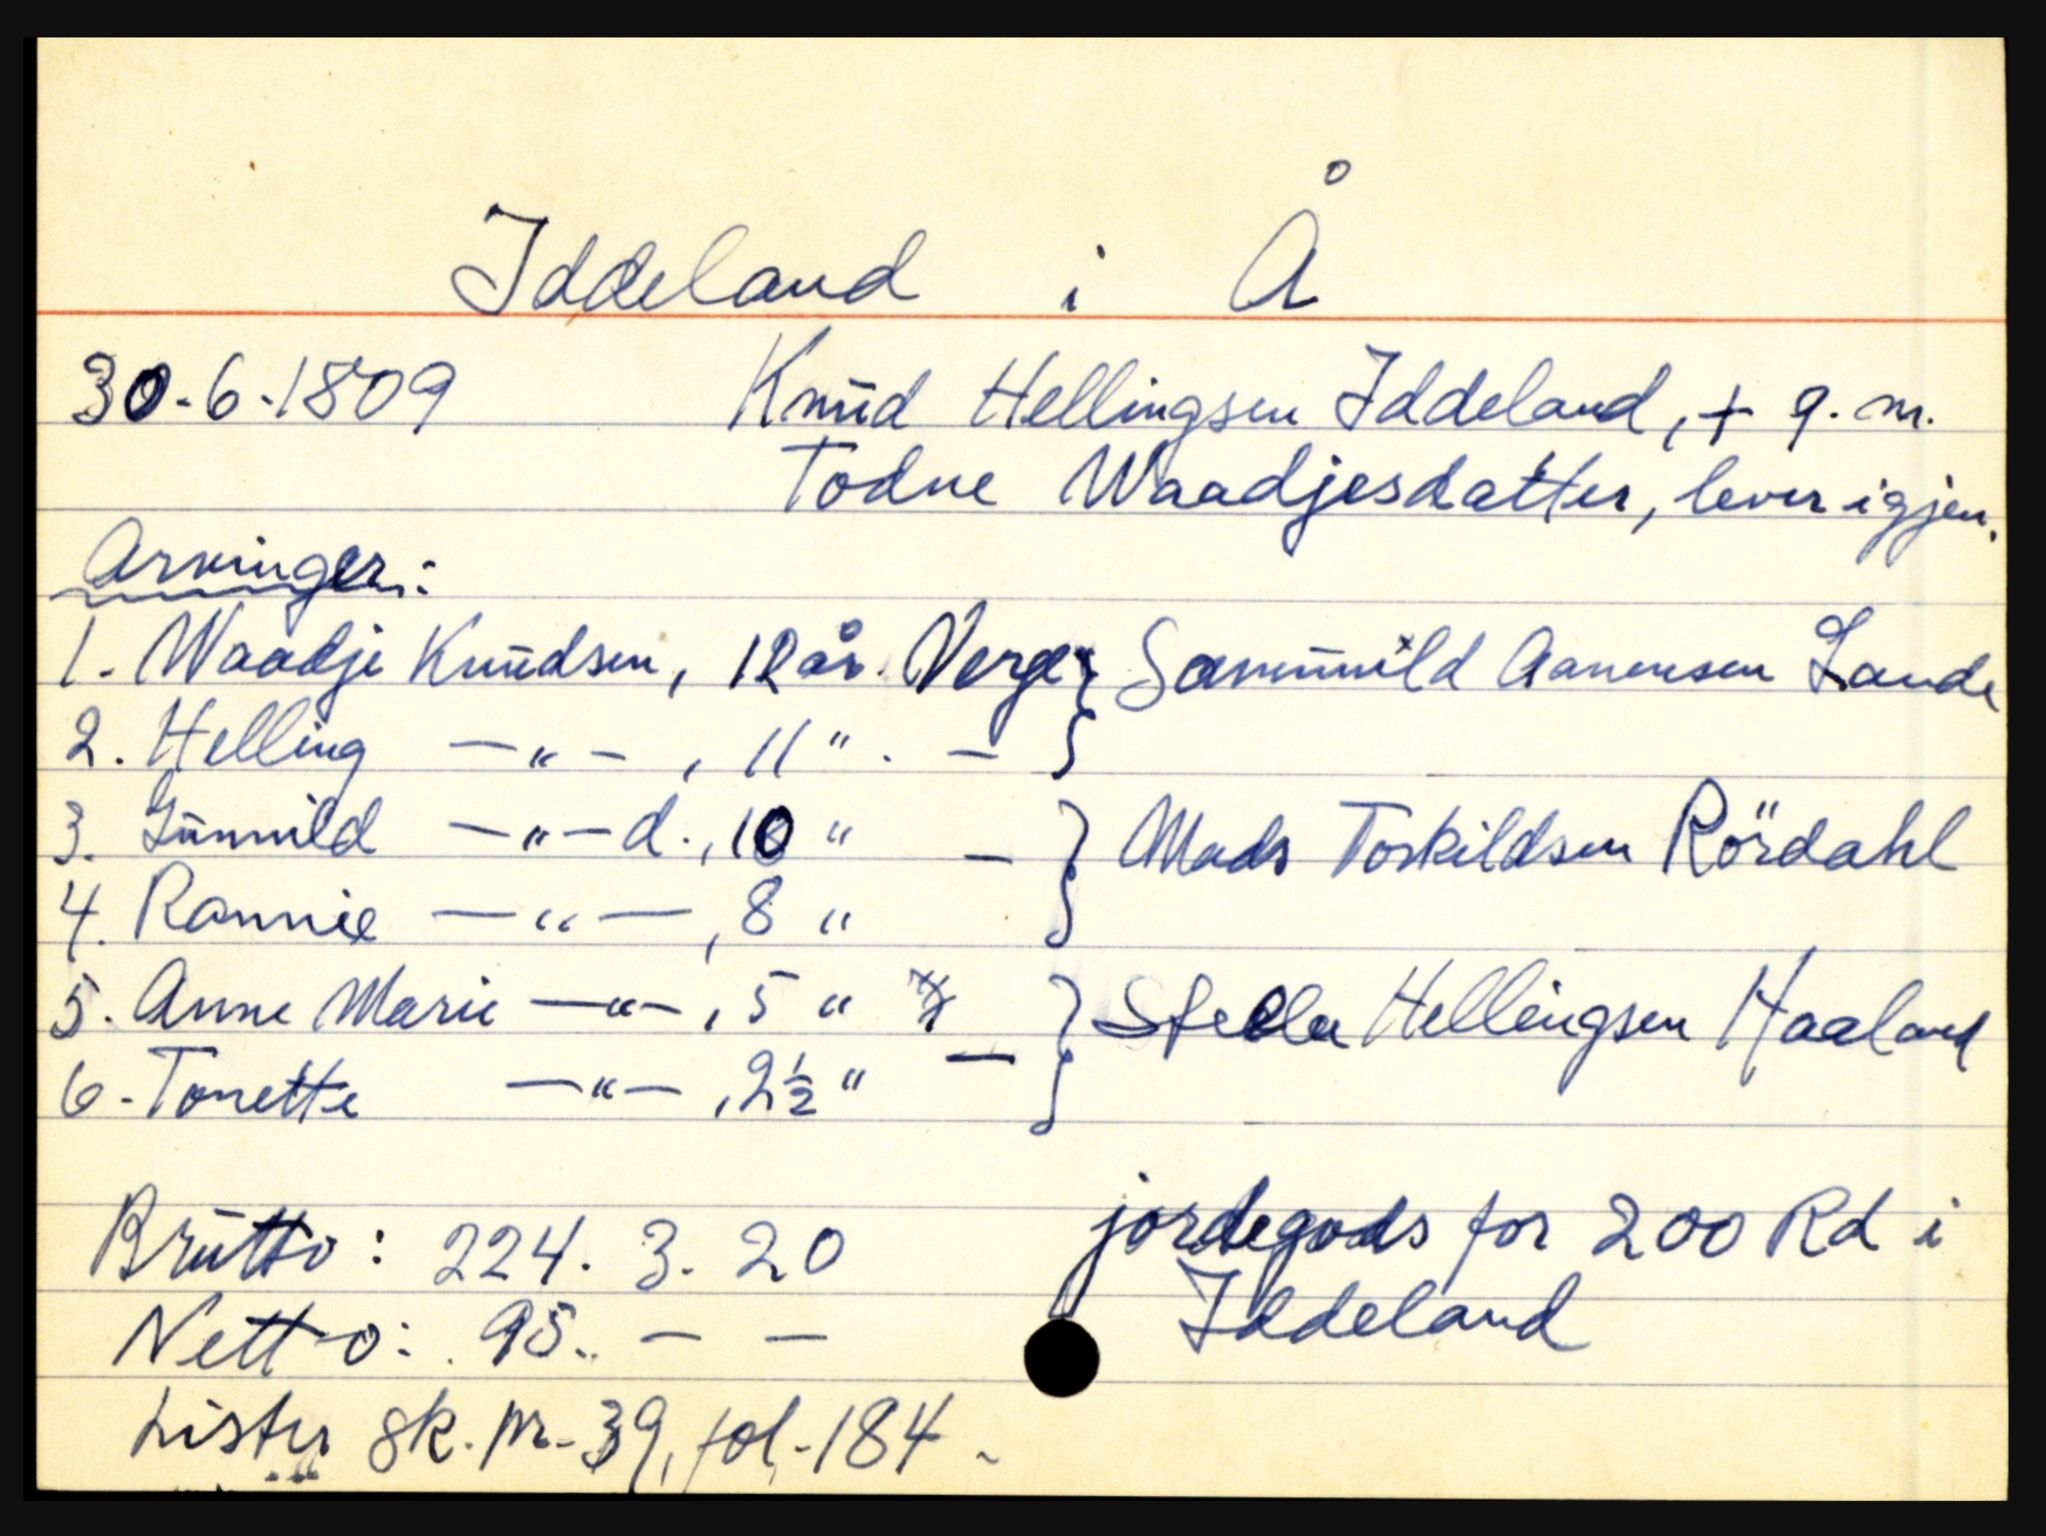 Iddeland i Å
30.6.1809 Knud Hellingsen Iddeland, + g.m.
Todne Waadjesdatter, lever igjen.
Arvinger:
1. Waadje Knudsen, 12 år. Verge } Sammuild Aanensen Lande
2. Helling —"—, 11 ". — }
3. Gunnild —"—d., 10 " — } Mads Torkildsen Rördahl
4. Rannie —"—, 8 " }
5. Anne Marie —"—, 5 " } Hellingsen Haaland
6. Tonette —"—, 2½ " — }
Brutto: 224. 3. 20 jordegods for 200 Rd i
Netto: 95. — — Iddeland
Lister sk.pr. 39, fol. 184.